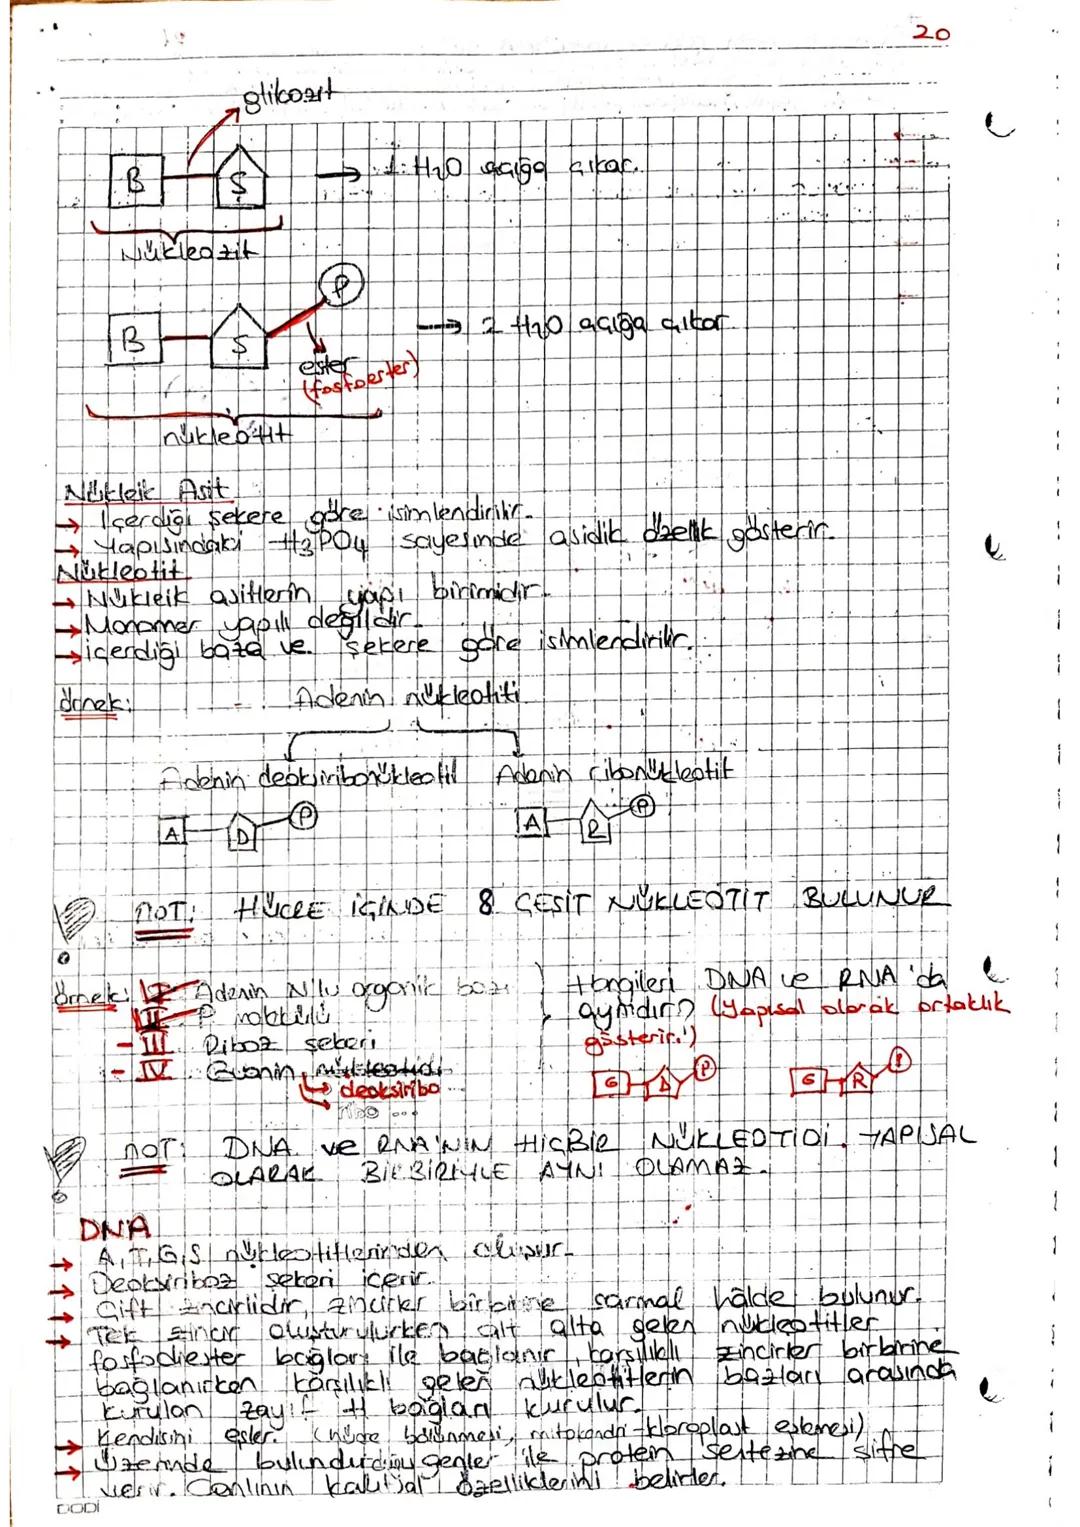 20
glikozit
B Ş → 1 H2O açığa çıkar.
Nükleozit
P
B Ş → 2 H2O açığa çıkar
ester
(fosfoester)
nükleotit
Nükleik Asit
→ İçerdiği şekere göre isimlendirilir.
→ Yapısındaki H3PO4 sayesinde asidik özellik gösterir.
Nükleotit
→ Nükleik asitlerin yapı birimidir.
→ Monomer yapılı değildir.
→ içerdiği baza ve şekere göre isimlendirilir.
örnek: Adenin nükleotiti
Adenin deoksiribonükleotit Adenin ribonükleotit
A D P A R P
NOT: HÜCRE İÇİNDE 8 ÇEŞİT NÜKLEOTİT BULUNUR
örnek: I Adenin N'lu organik bazı } Hangileri DNA ve RNA'da
II P molekülü aynıdır? (Yapısal olarak ortaklık
- III Riboz şekeri gösterir.)
- IV Guanin nükleotidi G D P G R P
→ deoksiribo
→ ribo ...
NOT: DNA ve RNA'NIN HİÇBİR NÜKLEOTİDİ YAPISAL
OLARAK BİRBİRİYLE AYNI OLAMAZ.
DNA
→ A,T,G,S nükleotitlerinden oluşur.
→ Deoksiriboz şekeri içerir.
→ Çift zincirlidir, zincirler birbirine sarmal hâlde bulunur.
→ Tek zincir oluşturulurken alt alta gelen nükleotitler
fosfodiester bağları ile bağlanır, karşılıklı zincirler birbirine
bağlanırken karşılıklı gelen nükleotitlerin bazları arasında
kurulan zayıf H bağları kurulur.
→ Kendisini eşler. (hücre bölünmesi, mitokondri-kloroplast eşlemesi)
→ Üzerinde bulundurduğu genler ile protein sentezine şifre
verir. Canlının kalıtsal özelliklerini belirler.
DODİ